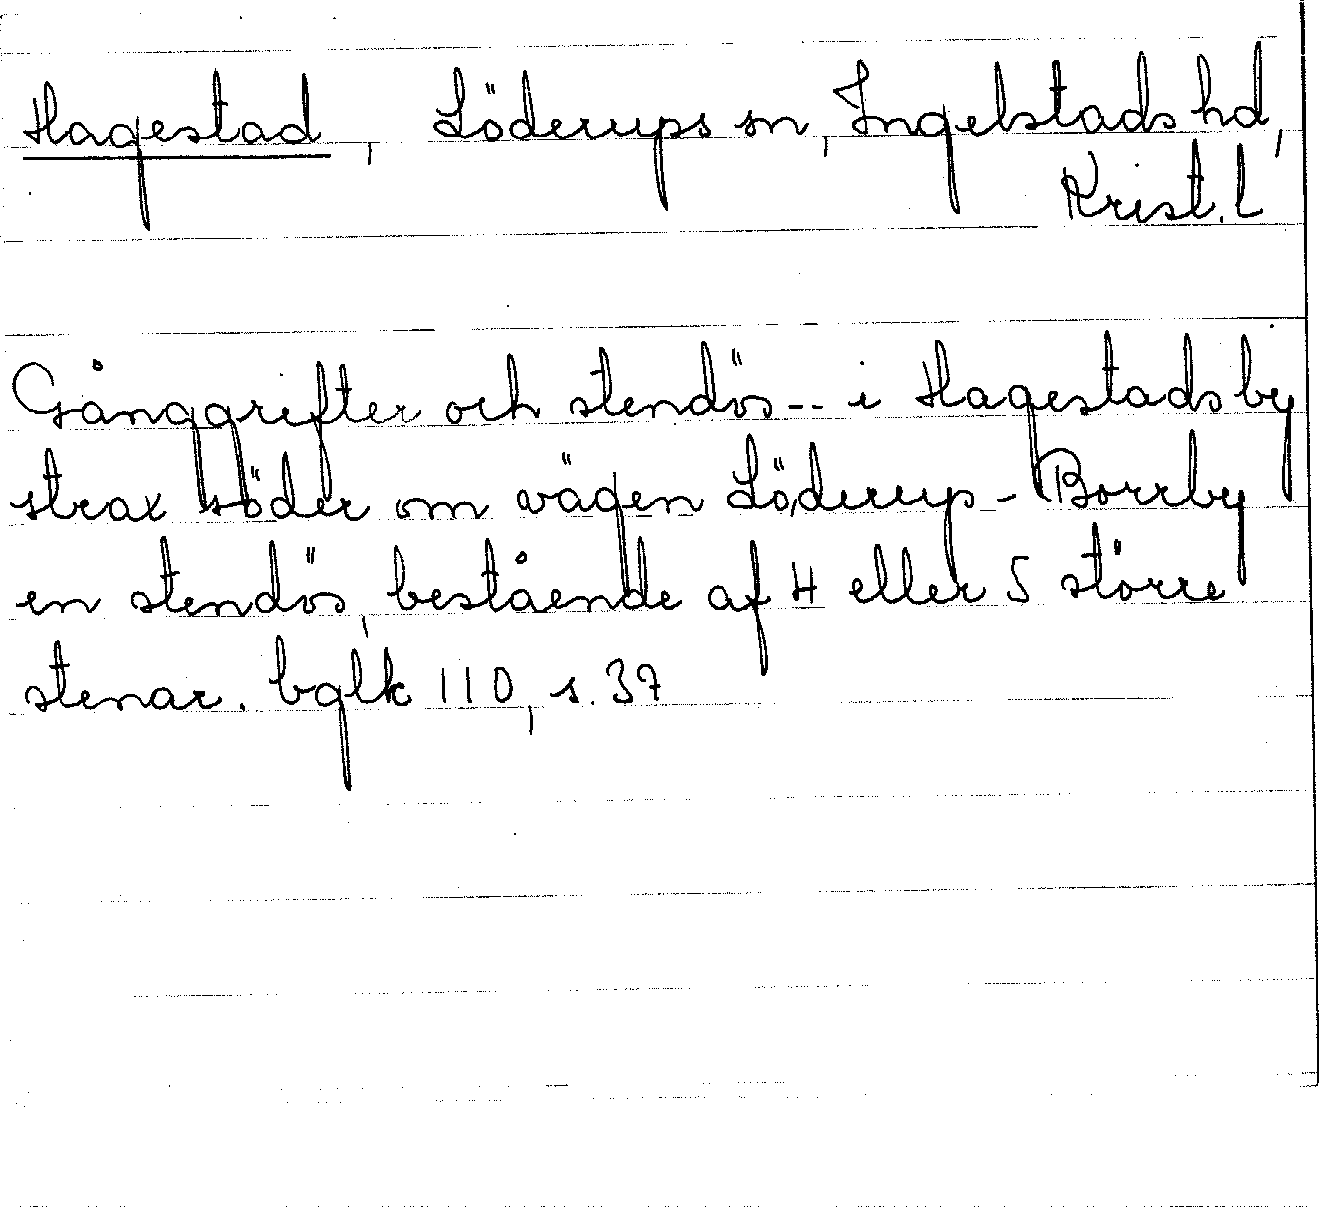 Hagestad, Löderups sn, Ingelstads hd,
Krist. l
Gånggrifter och stendös -- i Hagestads by
strax söder om vägen Löderup - Borrby
en stendös, bestående af 4 eller 5 större
stenar. bglk 110, s. 37